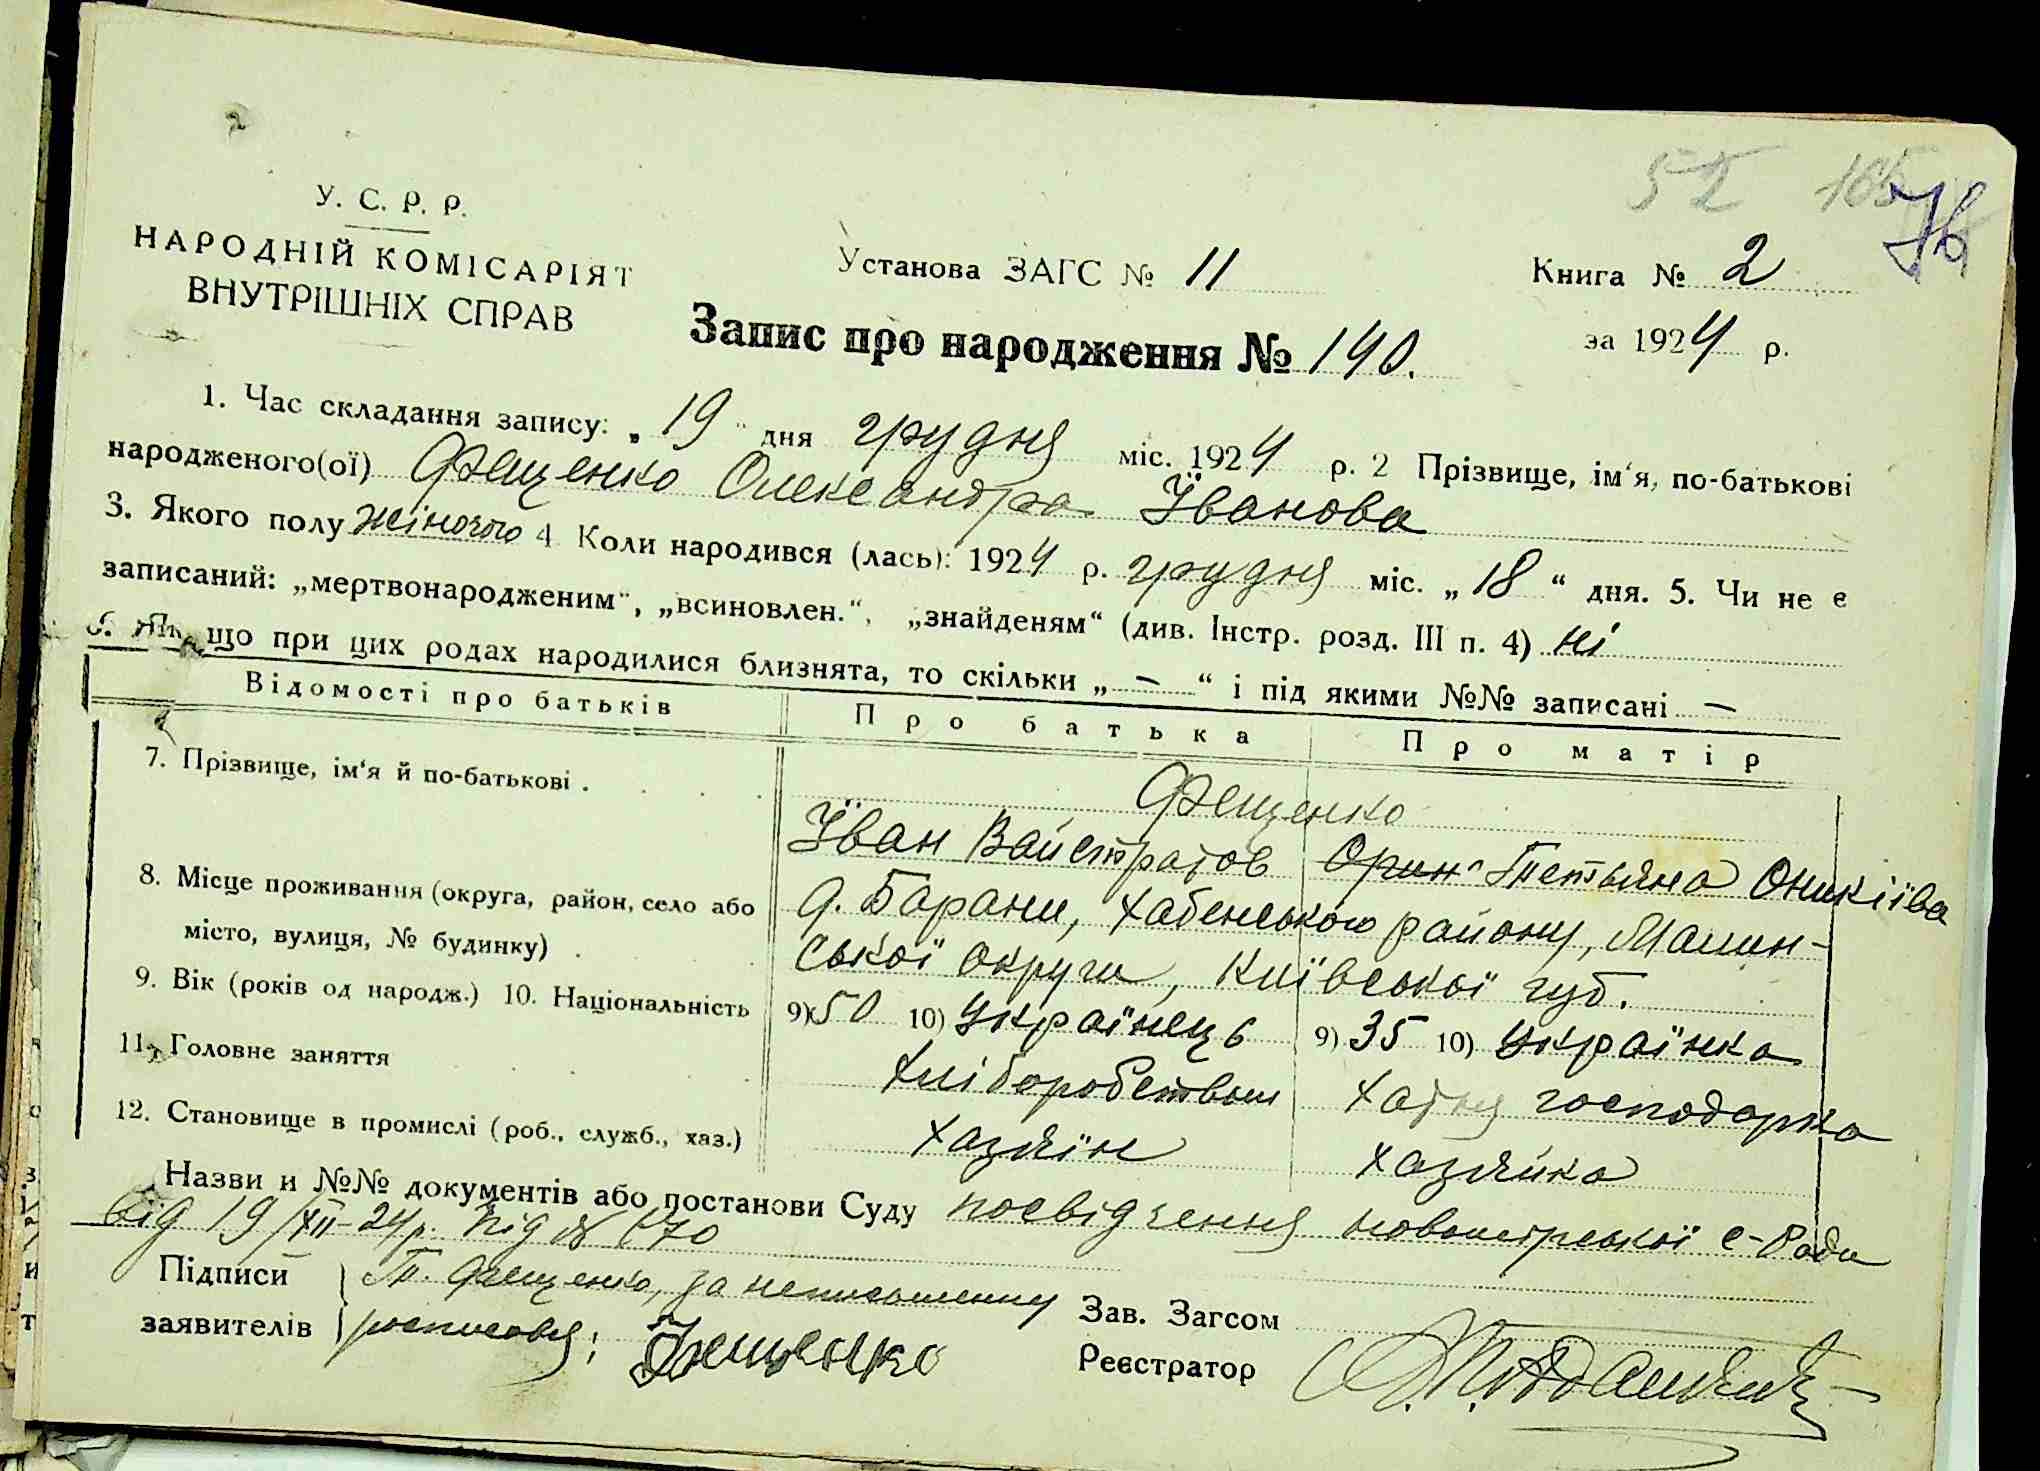 52 165 76
У. С. Р. Р.
НАРОДНІЙ КОМІСАРІЯТ
ВНУТРІШНІХ СПРАВ
Установа ЗАГС № 11
Книга № 2
Запис про народження № 140.
за 1924 р.
1. Час складання запису: „19" дня грудня міс. 1924 р. 2 Прізвище, ім'я, по-батькові
народженого(ої) Фещенко Олександра Їванова
3. Якого полу жіночого 4 Коли народився (лась): 1924 р. грудня міс. „18" дня. 5. Чи не є
записаний: „мертвонародженим", „всиновлен.", „знайденям" (див. Інстр. розд. III п. 4) ні
6. Якщо при цих родах народилися близнята, то скільки „—" і під якими №№ записані —
Відомості про батьків
Про батька
Про матір
7. Прізвище, ім'я й по-батькові .
Фещенко
Їван Вайстратов
Орин Тетьяна Оникіїва
8. Місце проживання (округа, район, село або
місто, вулиця, № будинку)
д. Барани, Хабенського району, Малин-
ської округи, Київської губ.
9. Вік (років од народж.) 10. Національність
9) 50 10) Українець
9) 35 10) Українка
11. Головне заняття
Хліборобством
Хатня господарка
12. Становище в промислі (роб., служб., хаз.)
Хазяїн
Хазяйка
Назви и №№ документів або постанови Суду посвідчення с-Ради
від 19/XII-24р. під № 170
Підписи
заявителів
Т. Фещенко, за неписьменну
росписався: Фещенко
Зав. Загсом
Реєстратор